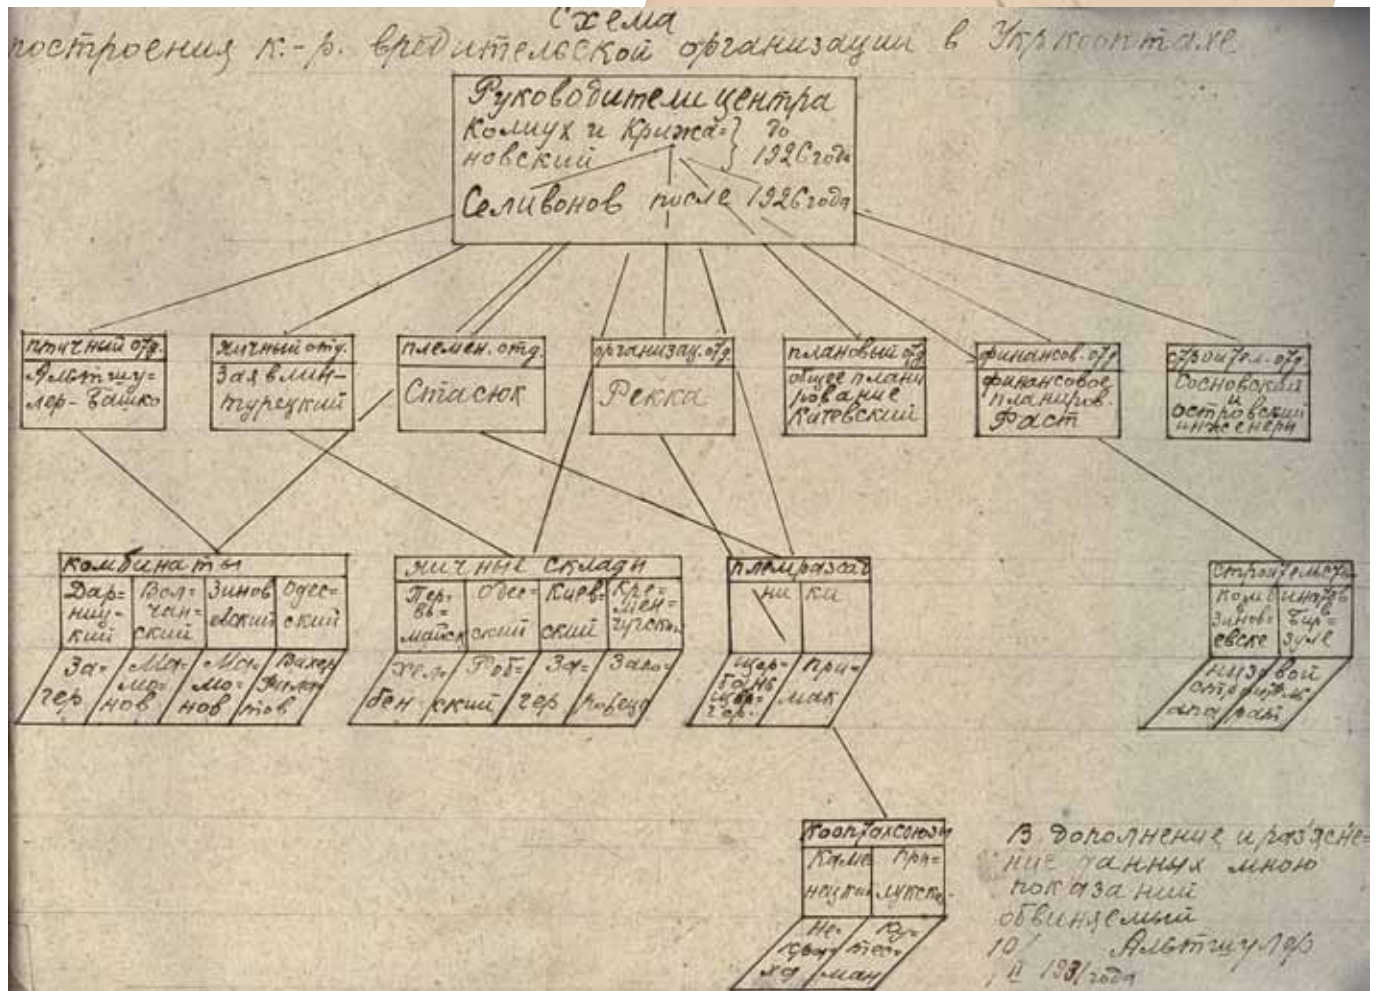 Схема
построения к.-р. вредительской организации в Укркооптахе
Руководители центра
Колиух и Крижа=
новский
} до
1926 года
Селивонов после 1926 года
птичный отд.
Альтшу=
лер-Башко
яичный отд.
Заявлин-
турецкий
племен. отд.
Стасюк
организац. отд.
Рекка
плановый отд
общее плани
рование
Китевский
финансов. отд
финансовое
планиров.
Фаст
строител. отд
Сосновский
и
островский
инженери
комбинаты
Дар=
ниц=
кий
Вол=
чан=
ский
Зинов
евский
Одес=
ский
За=
чер
Ма=
мо=
нов
Ма=
мо=
нов
яичные склади
Пер=
вь=
майск
Одес=
ский
Киев=
ский
Кре=
мен=
чугски
Хел=
бен
Роб=
ский
За=
чер
племразсад
ни ки
При=
мак
строительств
комбинатов
в
Зинов=
евске
Бир=
зуле
низовой
строит.
апа рат
кооптахсоюзы
Каме
нецкий
При=
лукски
Ку=
тес=
ман
В дополнение и раз'ясне=
ние данных мною
показаний
обвиняемый
10/ Альтшулер
II 1931 года